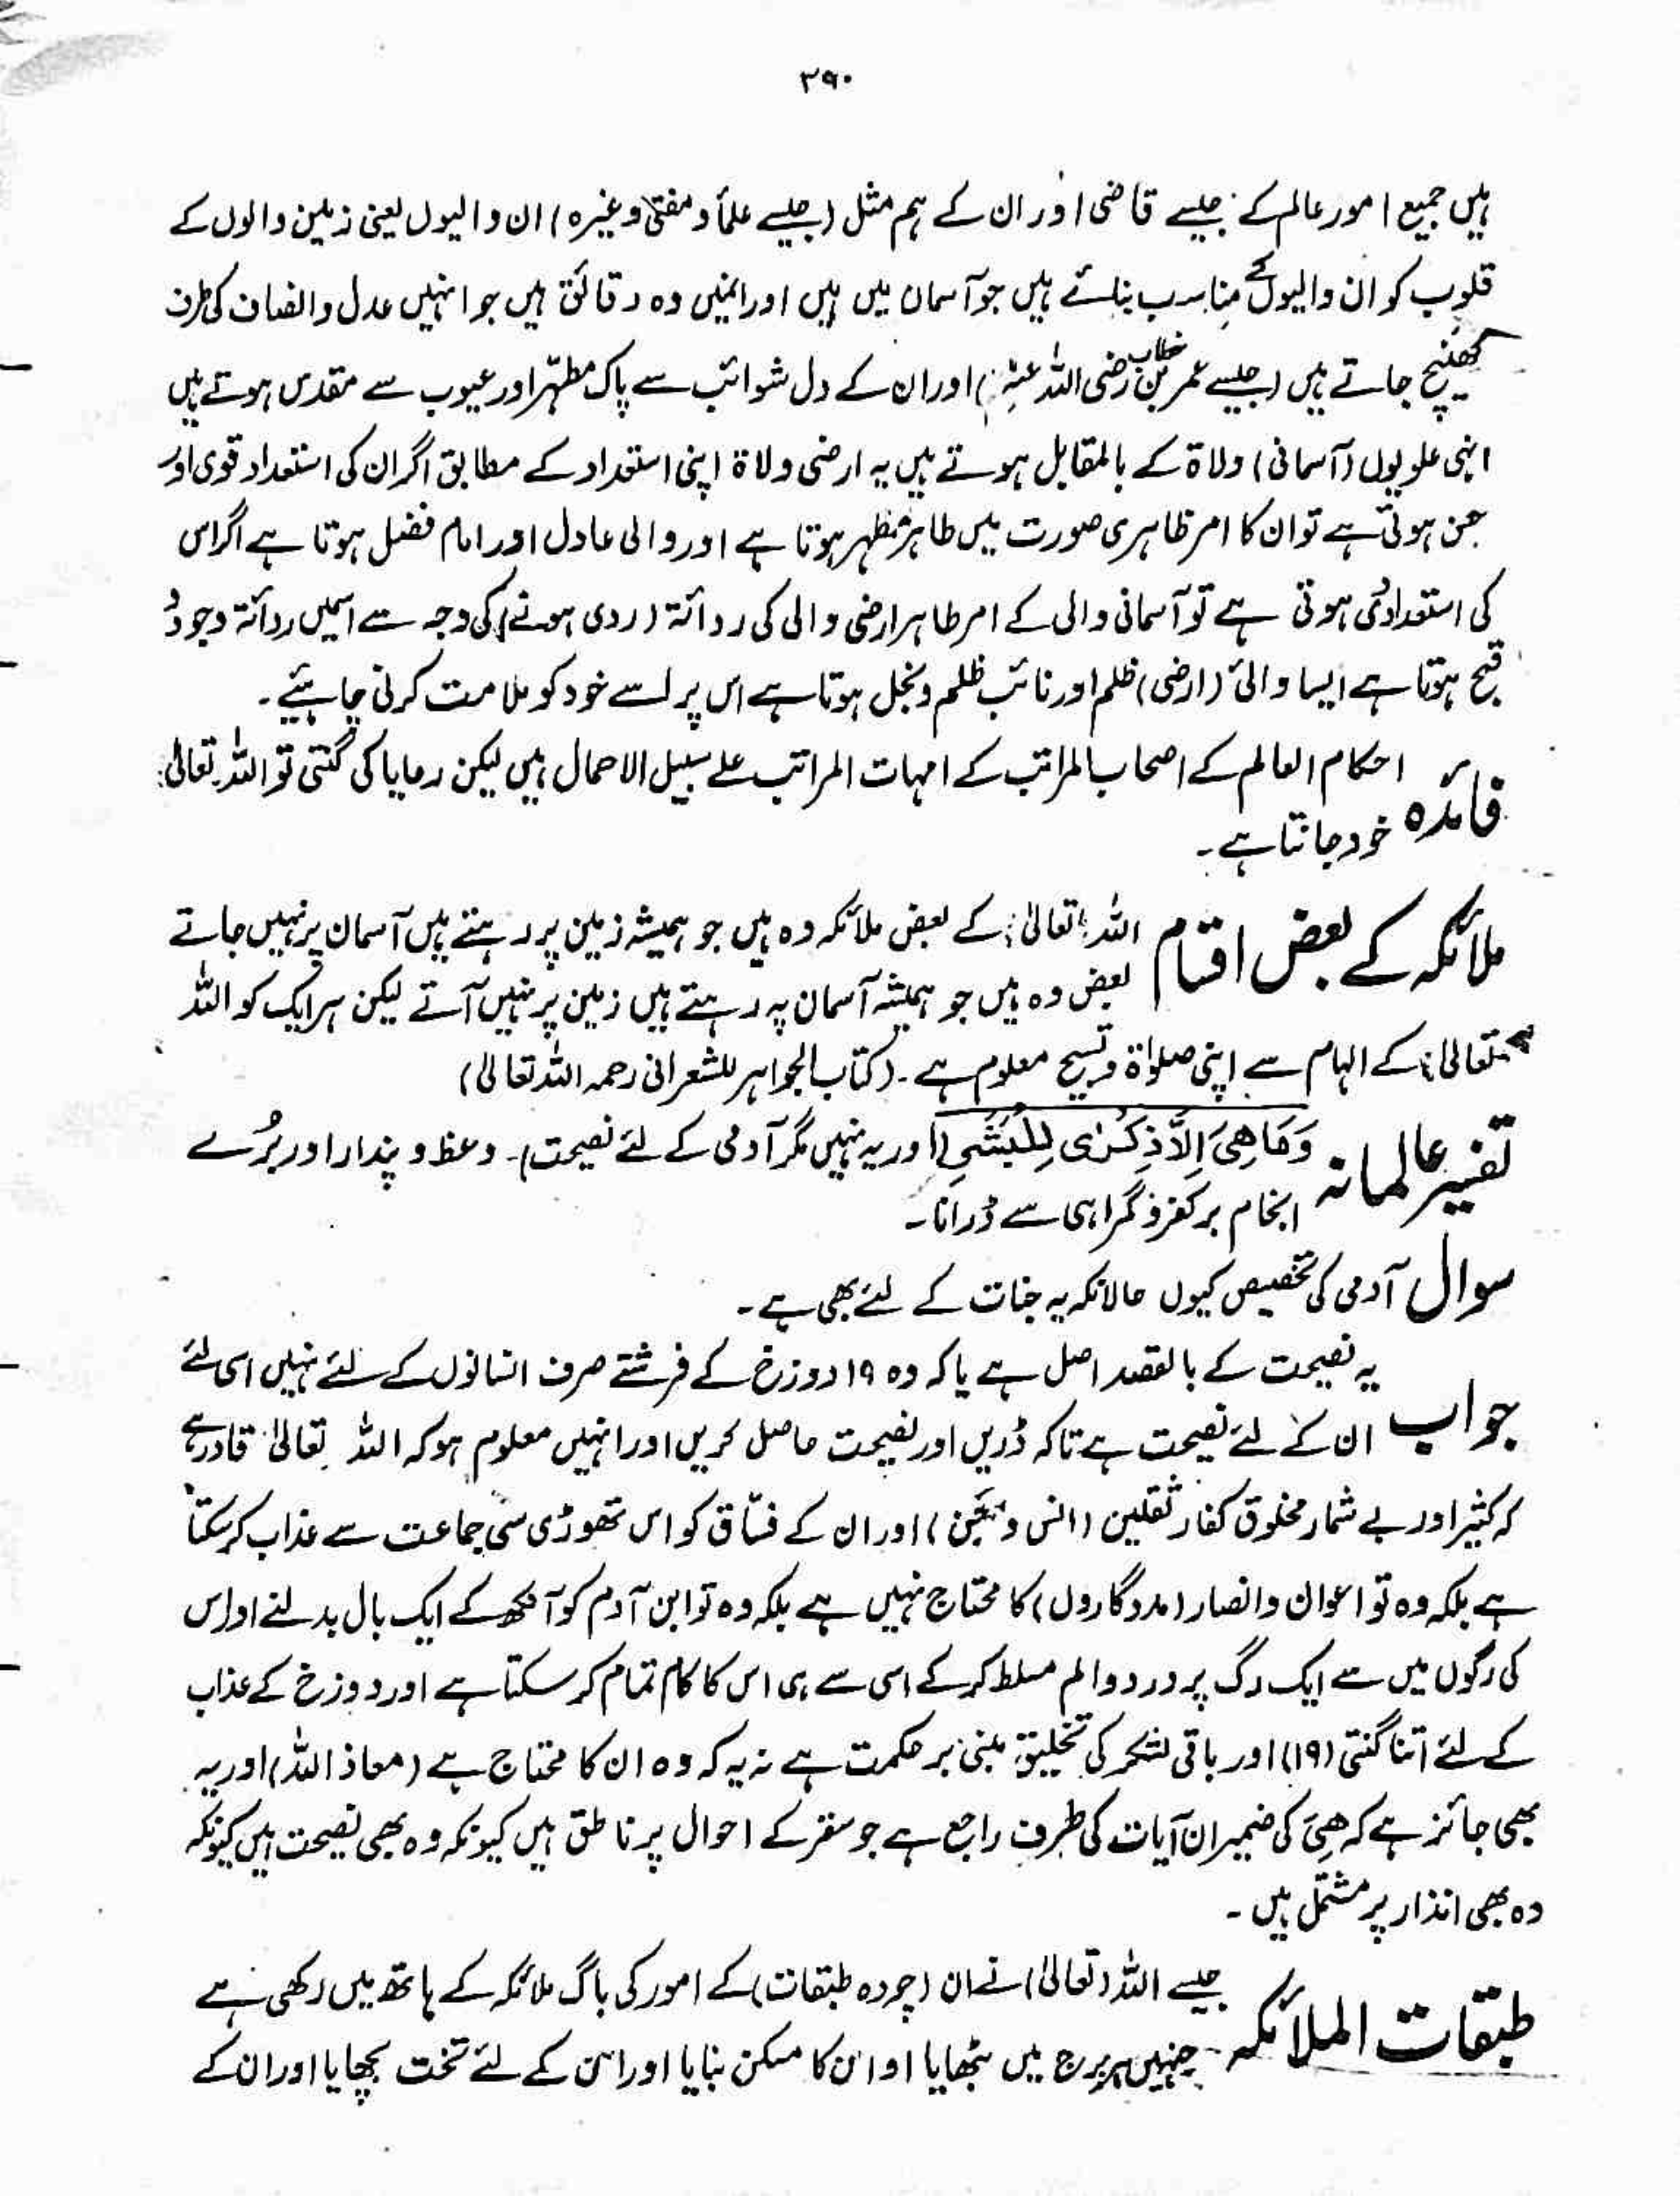 ۳۹۰
ہیں جمیع امور عالم کے جیسے قاضی اور ان کے ہم مثل (جیسے علماٗ و مفتی وغیرہ) ان والیوں یعنی زمین والوں کے
قلوب کو ان والیوں کے مناسب بنائے ہیں جو آسمان میں ہیں اور انہیں وہ دقائق ہیں جو انہیں عدل والضاف کی طرف
کھینچ جاتے ہیں (جیسے عمر بن خطاب رضی اللہ عنہ) اور ان کے دل شوائب سے پاک مطہّر اور عیوب سے مقدس ہوتے ہیں
اپنی علویوں (آسمانی) ولاۃ کے بالمقابل ہوتے ہیں یہ ارضی ولاۃ اپنی استعداد کے مطابق اگر ان کی استعداد قوی اور
حسن ہوتی ہے تو ان کا امر ظاہری صورت میں طاہر مطہر ہوتا ہے اور والی عادل اور امام فضل ہوتا ہے اگر اس
کی استعداد ردی ہوتی ہے تو آسمانی والی کے امر طاہر ارضی والی کی ردائۃ (ردی ہونے) کی وجہ سے اسمیں ردائۃ وجود
قبح ہوتا ہے ایسا والیٔ (ارضی) ظلم اور نائب ظلم و بخل ہوتا ہے اس پر اسے خود کو ملامت کرنی چاہئیے۔
فائدہ احکام العالم کے اصحاب المراتب کے امہات المراتب علے سبیل الاحمال ہیں لیکن رعایا کی گنتی تو اللہ تعالیٰ
خود جانتا ہے۔
ملائکہ کے بعض اقسام اللہ تعالیٰ کے بعض ملائکہ وہ ہیں جو ہمیشہ زمین پر رہتے ہیں آسمان پر نہیں جاتے
بعض وہ ہیں جو ہمیشہ آسمان پہ رہتے ہیں زمین پر نہیں آتے لیکن ہر ایک کو اللہ
تعالیٰ کے الہام سے اپنی صلواۃ و تسبیح معلوم ہے۔ (کتاب الجواہر للشعرانی رحمہ اللہ تعالیٰ)
تفسیر عالمانہ وَمَا هِيَ اِلَّا ذِكْرٰى لِلْبَشَرِ (اور یہ نہیں مگر آدمی کے لئے نصیحت)۔ وعظ و پندار اور بُرے
انجام بر کفر و گمراہی سے ڈرانا۔
سوال آدمی کی تخصیص کیوں حالانکہ یہ جنات کے لئے بھی ہے۔
جواب یہ نصیحت کے بالقصد اصل ہے یا کہ وہ ۱۹ دوزخ کے فرشتے صرف انسانوں کے لئے نہیں اسی لئے
ان کے لئے نصیحت ہے تاکہ ڈریں اور نصیحت حاصل کریں اور انہیں معلوم ہو کہ اللہ تعالیٰ قادر ہے
کہ کثیر اور بے شمار مخلوق کفار ثقلین (انس و جن) اور ان کے فسّاق کو اس تھوڑی سی جماعت سے عذاب کر سکتا
ہے بلکہ وہ تو اعوان وانصار (مددگاروں) کا محتاج نہیں ہے بلکہ وہ تو ابن آدم کو آنکھ کے ایک بال بدلنے اور اس
کی رگوں میں سے ایک رگ پر درد والم مسلط کر کے اسی سے ہی اس کا کام تمام کر سکتا ہے اور دوزخ کے عذاب
کے لئے اتنا گنتی (۱۹) اور باقی لشکر کی تخلیق مبنی بر حکمت ہے نہ یہ کہ وہ ان کا محتاج ہے (معاذ اللہ) اور یہ
بھی جائز ہے کہ ھِیَ کی ضمیر ان آیات کی طرف راجع ہے جو سقر کے احوال پر ناطق ہیں کیونکہ وہ بھی نصیحت ہیں کیونکہ
وہ بھی انذار پر مشتمل ہیں۔
طبقات الملائکہ جیسے اللہ (تعالیٰ) نے ان (چودہ طبقات) کے امور کی باگ ملائکہ کے ہاتھ میں رکھی ہے
جنہیں ہر برج میں بٹھایا او ان کا مسکن بنایا اور اس کے لئے تخت بچھایا اور ان کے